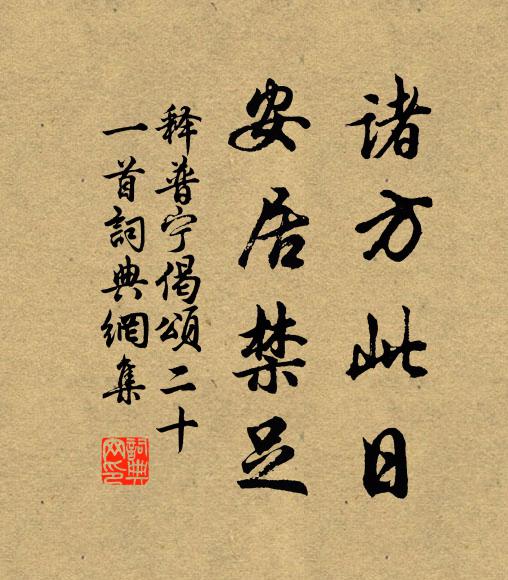 諸方此日
安居禁足
释普宁偈頌二十
一首詞典網集
詞典
网印